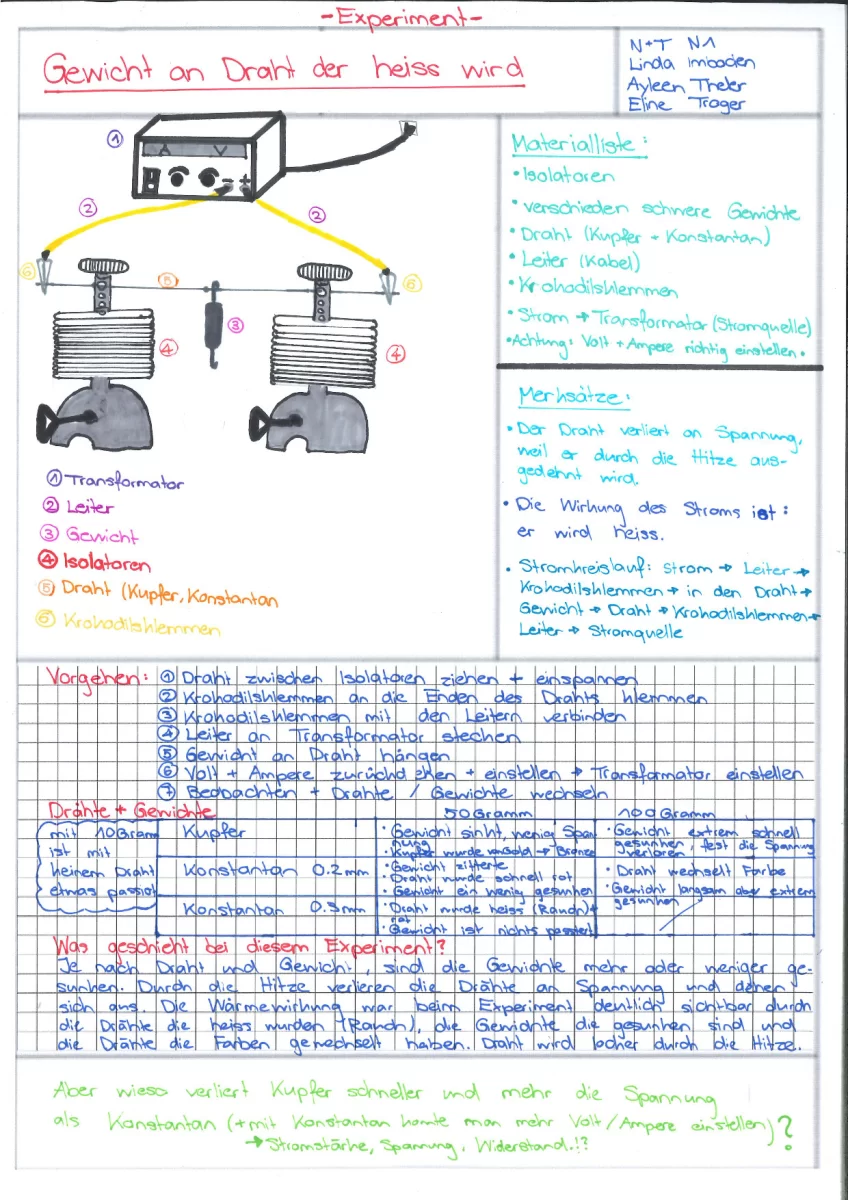 -Experiment-
Gewicht an Draht der heiss wird
N+T N1
Linda Imboden
Ayleen Theler
Eline Troger
A V
- +
①
②
②
⑥
⑤
⑥
③
④
④
① Transformator
② Leiter
③ Gewicht
④ Isolatoren
⑤ Draht (Kupfer, Konstantan
⑥ Krokodilsklemmen
Materialliste:
• Isolatoren
• verschieden schwere Gewichte
• Draht (Kupfer + Konstantan)
• Leiter (Kabel)
• Krokodilsklemmen
• Strom → Transformator (Stromquelle)
• Achtung: Volt + Ampere richtig einstellen.
Merksätze:
• Der Draht verliert an Spannung,
weil er durch die Hitze aus-
gedehnt wird.
• Die Wirkung des Stroms ist:
er wird heiss.
• Stromkreislauf: Strom → Leiter →
Krokodilsklemmen → in den Draht →
Gewicht → Draht → Krokodilsklemmen →
Leiter → Stromquelle
Vorgehen: ① Draht zwischen Isolatoren ziehen + einspannen
② Krokodilsklemmen an die Enden des Drahts klemmen
③ Krokodilsklemmen mit den Leitern verbinden
④ Leiter an Transformator stecken
⑤ Gewicht an Draht hängen
⑥ Volt + Ampere + einstellen → Transformator einstellen
⑦ Beobachten + Drähte / Gewichte wechseln
Drähte + Gewichte
50 Gramm
100 Gramm
mit 10 Gramm
ist mit
keinem Draht
etwas passiert
Kupfer
• Gewicht sinkt, wenig Span
nung
• Kupfer wurde → Bronze
• Gewicht extrem schnell
gesunken, fest die Spannung
verloren
Konstantan 0.2mm
• Gewicht zitterte
• Draht wurde schnell rot
• Gewicht ein wenig gesunken
• Draht wechselt Farbe
• Gewicht langsam aber extrem
gesunken
Konstantan 0.3mm
• Draht wurde heiss (Rauch) +
rot
• Gewicht ist nichts passiert
Was geschieht bei diesem Experiment?
Je nach Draht und Gewicht, sind die Gewichte mehr oder weniger ge-
sunken. Durch die Hitze verlieren die Drähte an Spannung und dehen
sich aus. Die Wärmewirkung war beim Experiment deutlich sichtbar durch
die Drähte die heiss wurden (Rauch), die Gewichte die gesunken sind und
die Drähte die Farben gewechselt haben. Draht wird locker durch die Hitze.
Aber wieso verliert Kupfer schneller und mehr die Spannung
als Konstantan (+mit Konstantan konnte man mehr Volt/Ampere einstellen)?
→ Stromstärke, Spannung, Widerstand.!?